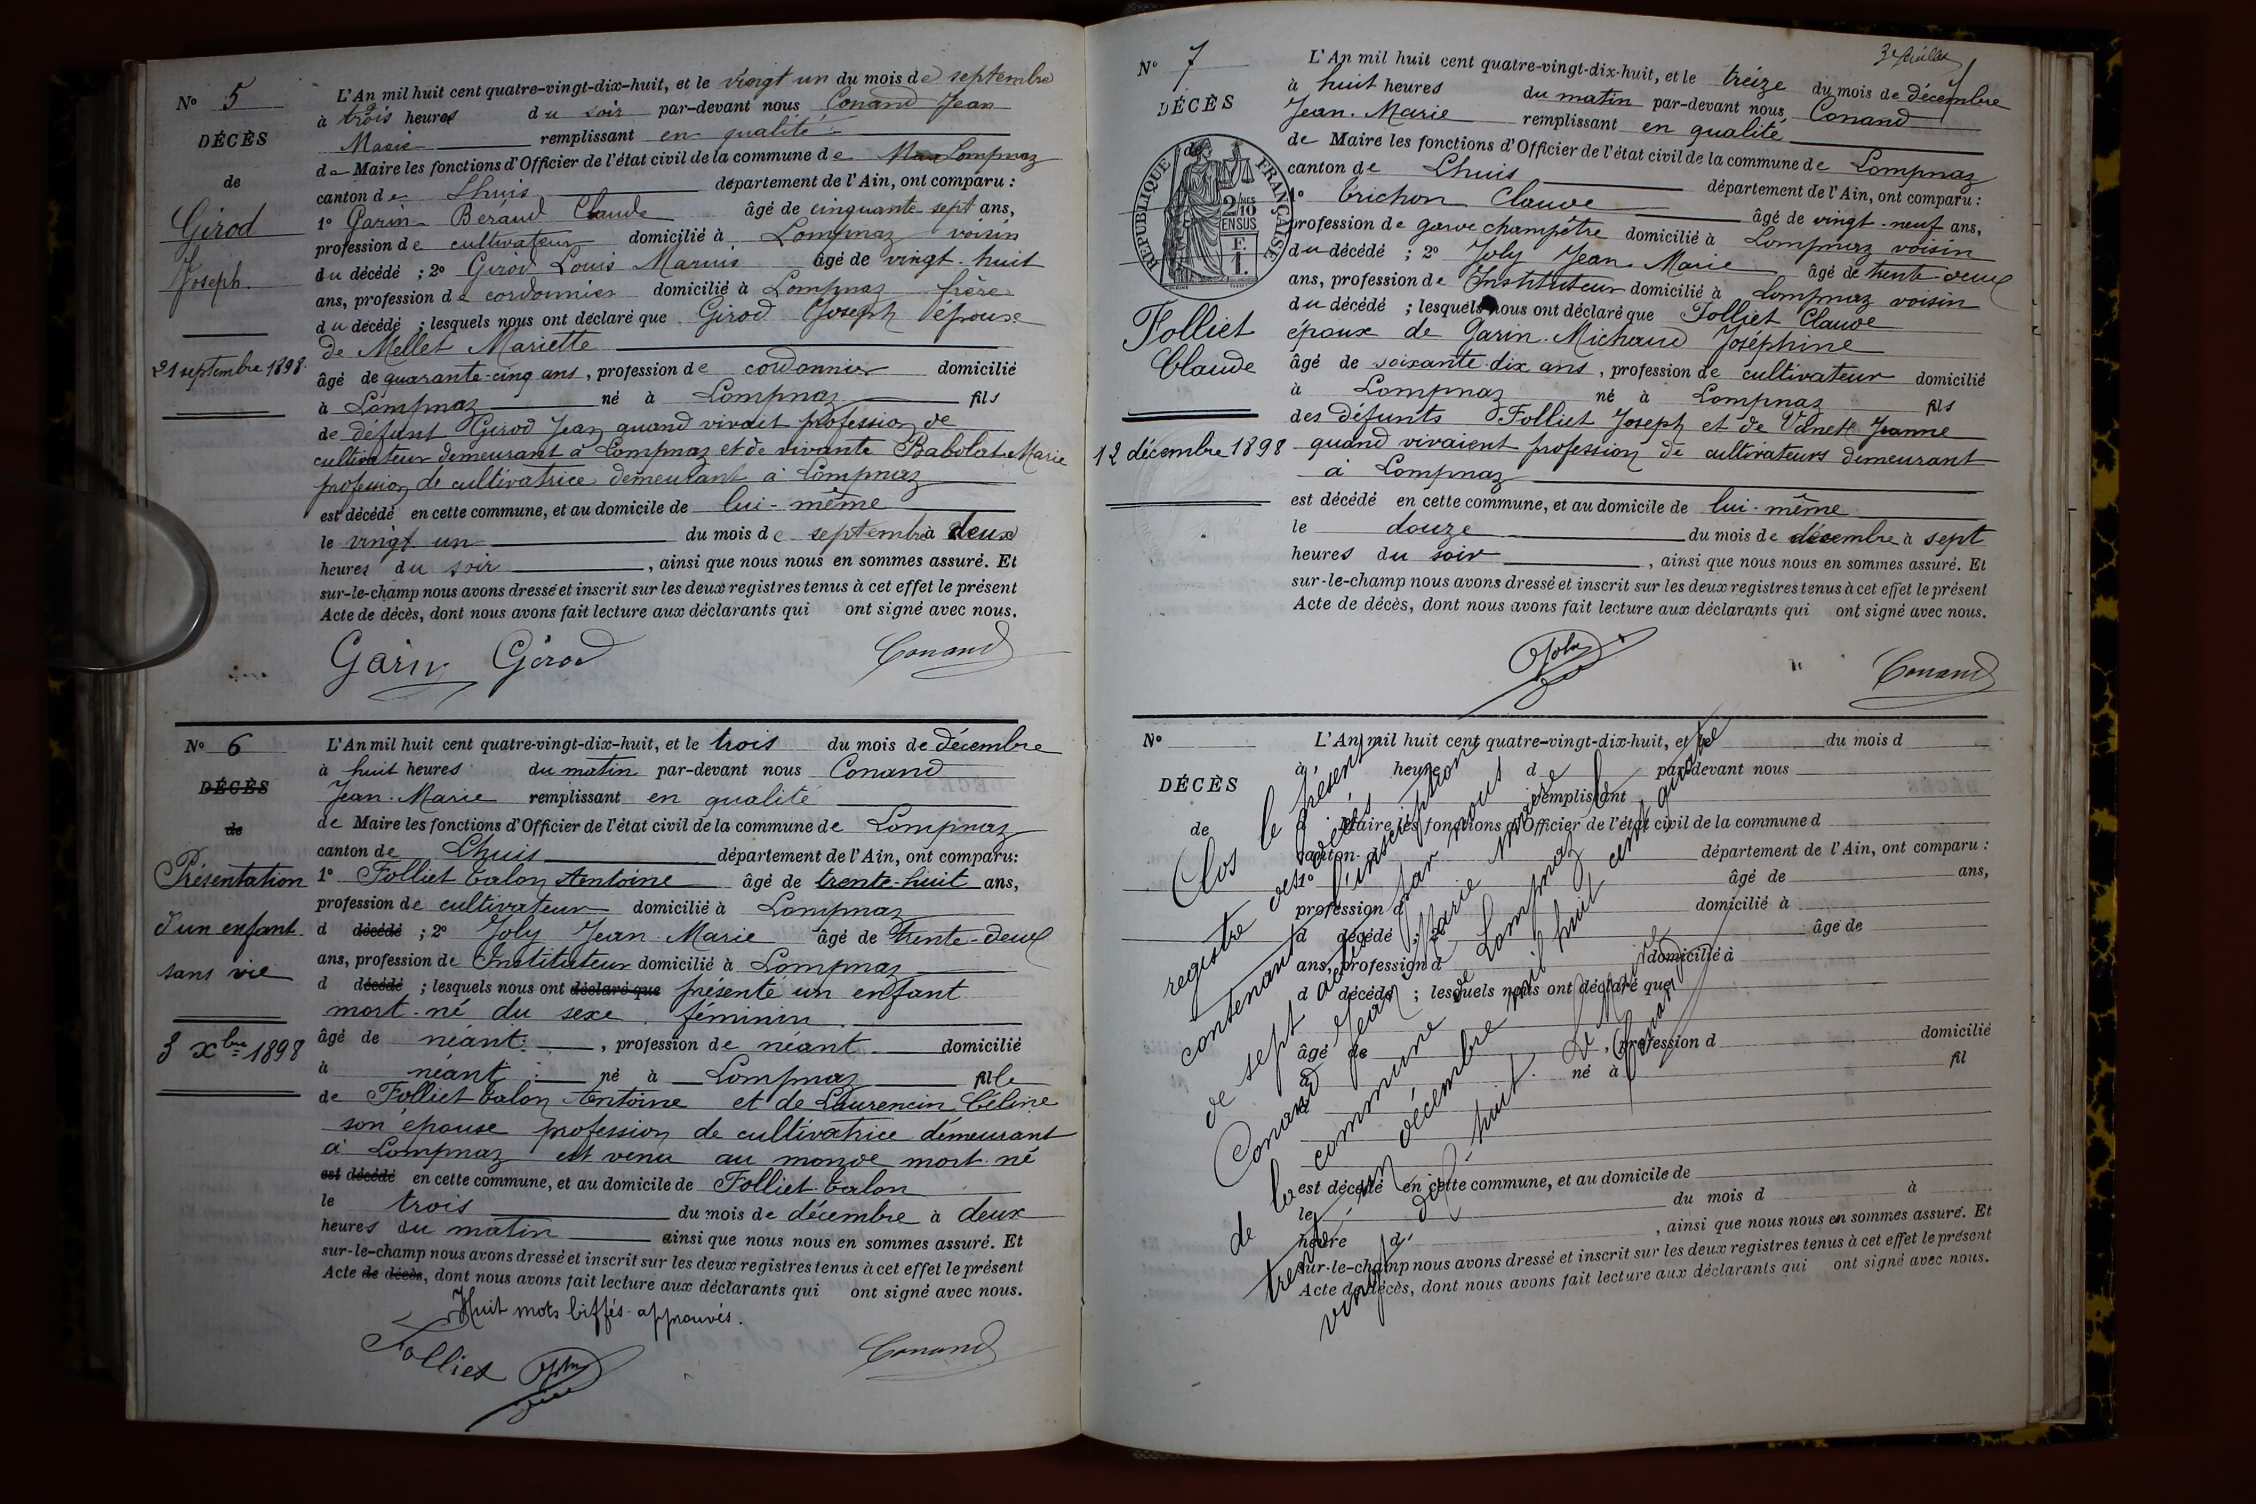 N° 5
DÉCÈS
de
Girod
Joseph.
21 septembre 1898.
L'An mil huit cent quatre-vingt-dix-huit, et le vingt un du mois de septembre
à trois heures du soir par-devant nous Conand Jean
Marie remplissant en qualité
de Maire les fonctions d'Officier de l'état civil de la commune de Lompnaz
canton de Lhuis département de l'Ain, ont comparu :
1° Garin Beraud Claude âgé de cinquante sept ans,
profession de cultivateur domicilié à Lompnaz voisin
du décédé ; 2° Girod Louis Marius âgé de vingt-huit
ans, profession de cordonnier domicilié à Lompnaz frère
du décédé ; lesquels nous ont déclaré que Girod Joseph épouse
de Mellet Mariette
âgé de quarante-cinq ans, profession de cordonnier domicilié
à Lompnaz né à Lompnaz fils
de défunt Girod Jean quand vivait profession de
cultivateur demeurant à Lompnaz et de vivante Babolat Marie
profession de cultivatrice demeurant à Lompnaz
est décédé en cette commune, et au domicile de lui-même
le vingt un du mois de septembre à deux
heures du soir, ainsi que nous nous en sommes assuré. Et
sur-le-champ nous avons dressé et inscrit sur les deux registres tenus à cet effet le présent
Acte de décès, dont nous avons fait lecture aux déclarants qui ont signé avec nous.
Garin Girod Conand
N° 6
DÉCÈS
de
Présentation
d'un enfant
sans vie
3 Xbre 1898
L'An mil huit cent quatre-vingt-dix-huit, et le trois du mois de décembre
à huit heures du matin par-devant nous Conand
Jean-Marie remplissant en qualité
de Maire les fonctions d'Officier de l'état civil de la commune de Lompnaz
canton de Lhuis département de l'Ain, ont comparu :
1° Folliet Calon Antoine âgé de trente-huit ans,
profession de cultivateur domicilié à Lompnaz
d décédé ; 2° Joly Jean-Marie âgé de trente-deux
ans, profession de Instituteur domicilié à Lompnaz
d décédé ; lesquels nous ont déclaré que présenté un enfant
mort-né du sexe féminin
âgé de néant, profession de néant domicilié
à néant né à Lompnaz fille
de Folliet Calon Antoine et de Laurencin Céline
son épouse profession de cultivatrice demeurant
à Lompnaz est venu au monde mort-né
est décédé en cette commune, et au domicile de Folliet-Calon
le trois du mois de décembre à deux
heures du matin ainsi que nous nous en sommes assuré. Et
sur-le-champ nous avons dressé et inscrit sur les deux registres tenus à cet effet le présent
Acte de décès, dont nous avons fait lecture aux déclarants qui ont signé avec nous.
Huit mots biffés approuvés.
Folliet Joly Conand
3e feuillet
N° 7
DÉCÈS
de
RÉPUBLIQUE FRANÇAISE
2/10 EN SUS
Folliet
Claude
12 décembre 1898
L'An mil huit cent quatre-vingt-dix-huit, et le treize du mois de décembre
à huit heures du matin par-devant nous Conand
Jean-Marie remplissant en qualité
de Maire les fonctions d'Officier de l'état civil de la commune de Lompnaz
canton de Lhuis département de l'Ain, ont comparu :
1° Crichon Claude âgé de vingt-neuf ans,
profession de garde champêtre domicilié à Lompnaz voisin
du décédé ; 2° Joly Jean-Marie âgé de trente-deux
ans, profession de Instituteur domicilié à Lompnaz voisin
du décédé ; lesquels nous ont déclaré que Folliet Claude
époux de Garin-Michaud Joséphine
âgé de soixante-dix ans, profession de cultivateur domicilié
à Lompnaz né à Lompnaz fils
des défunts Folliet Joseph et de Jeanne
quand vivaient profession de cultivateurs demeurant
à Lompnaz
est décédé en cette commune, et au domicile de lui-même
le douze du mois de décembre à sept
heures du soir, ainsi que nous nous en sommes assuré. Et
sur-le-champ nous avons dressé et inscrit sur les deux registres tenus à cet effet le présent
Acte de décès, dont nous avons fait lecture aux déclarants qui ont signé avec nous.
Joly Conand
N°
DÉCÈS
de
L'An mil huit cent quatre-vingt-dix-huit, et le du mois d
à heure d par-devant nous
remplissant
d Maire les fonctions d'Officier de l'état civil de la commune d
canton d département de l'Ain, ont comparu :
1° âgé de ans,
profession d domicilié à
d décédé ; 2° âgé de
ans, profession d domicilié à
d décédé ; lesquels nous ont déclaré que
âgé de , profession d domicilié
à né à fil
est décédé en cette commune, et au domicile de
le du mois d à
heure d , ainsi que nous nous en sommes assuré. Et
sur-le-champ nous avons dressé et inscrit sur les deux registres tenus à cet effet le présent
Acte de décès, dont nous avons fait lecture aux déclarants qui ont signé avec nous.
Clos le présent
registre des décès
contenant l'inscription
de sept actes par nous
Conand Jean Marie maire
de la commune de Lompnaz le
trente-un décembre mil huit cent quatre
vingt dix-huit.
Le Maire
Conand